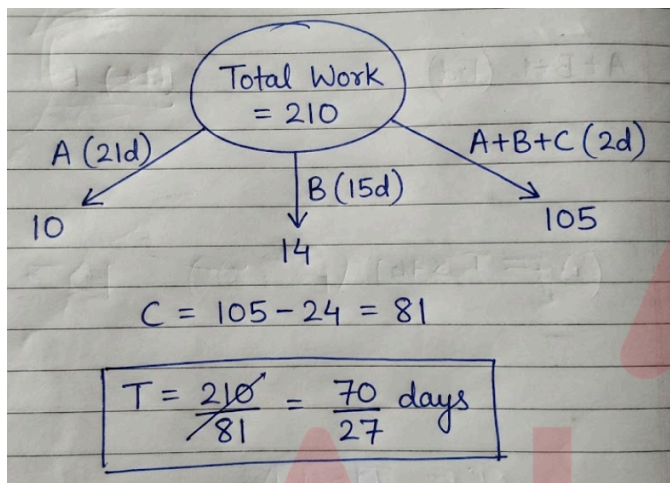 Total Work
= 210
A (21d)
B (15d)
A+B+C (2d)
10
14
105
C = 105 - 24 = 81
T = 210/81 = 70/27 days